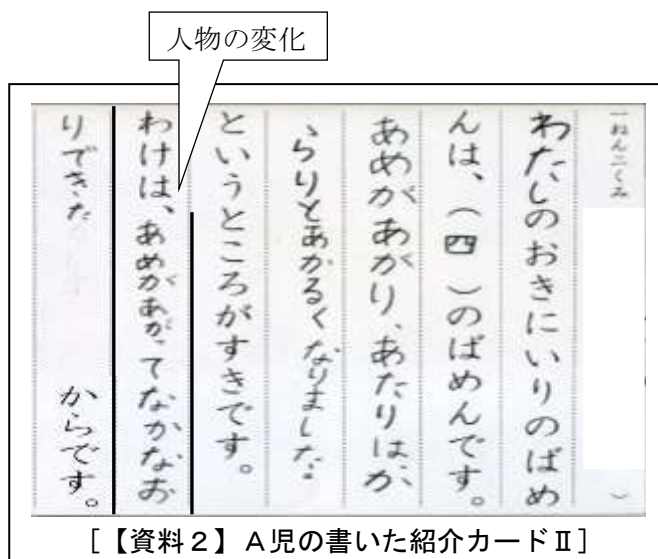 人物の変化
一ねん二くみ
）
わたしのおきにいりのばめ
んは、（四）のばめんです。
あめがあがり、あたりはか、
らりとあかるくなりました。
というところがすきです。
わけは、あめがあがってなかなお
りできた
からです。
[【資料２】Ａ児の書いた紹介カードⅡ]